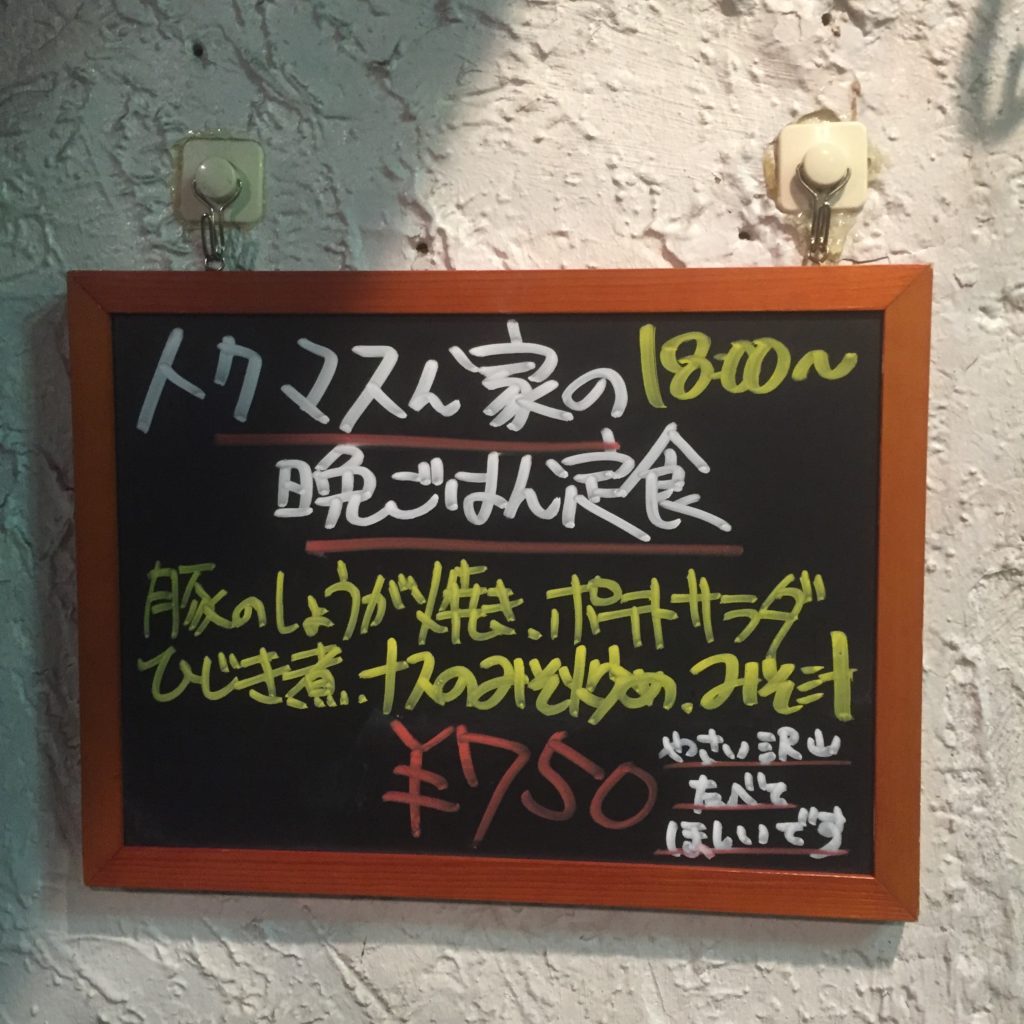 トクマスん家の 18:00〜
晩ごはん定食
豚のしょうが焼き、ポテトサラダ
ひじき煮、ナスのみそ炒め、みそ汁
¥750
やさい沢山
たべて
ほしいです